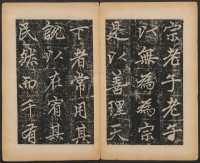 宗老子老子
以無為為宗
是以善理天
下者常用其
說以在宥其
民然而千有